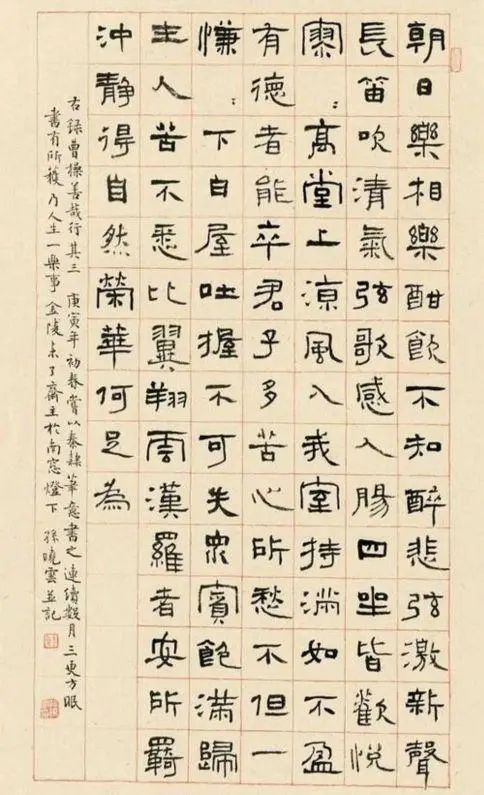 朝日樂相樂酣飲不知醉悲弦激新聲
長笛吹清氣弦歌感人腸四坐皆歡悅
寥：高堂上涼風入我室持滿如不盈
有德者能卒君子多苦心所愁不但一
慊：下白屋吐握不可失眾賓飽滿歸
主人苦不悉比翼翔雲漢羅者安所羈
沖靜得自然榮華何足為
右錄曹操善哉行其三 庚寅年初春嘗以秦隸筆意書之連續數月三更方眠
書有所獲乃人生一樂事金陵未了齋主於南窗燈下 孫曉雲並記